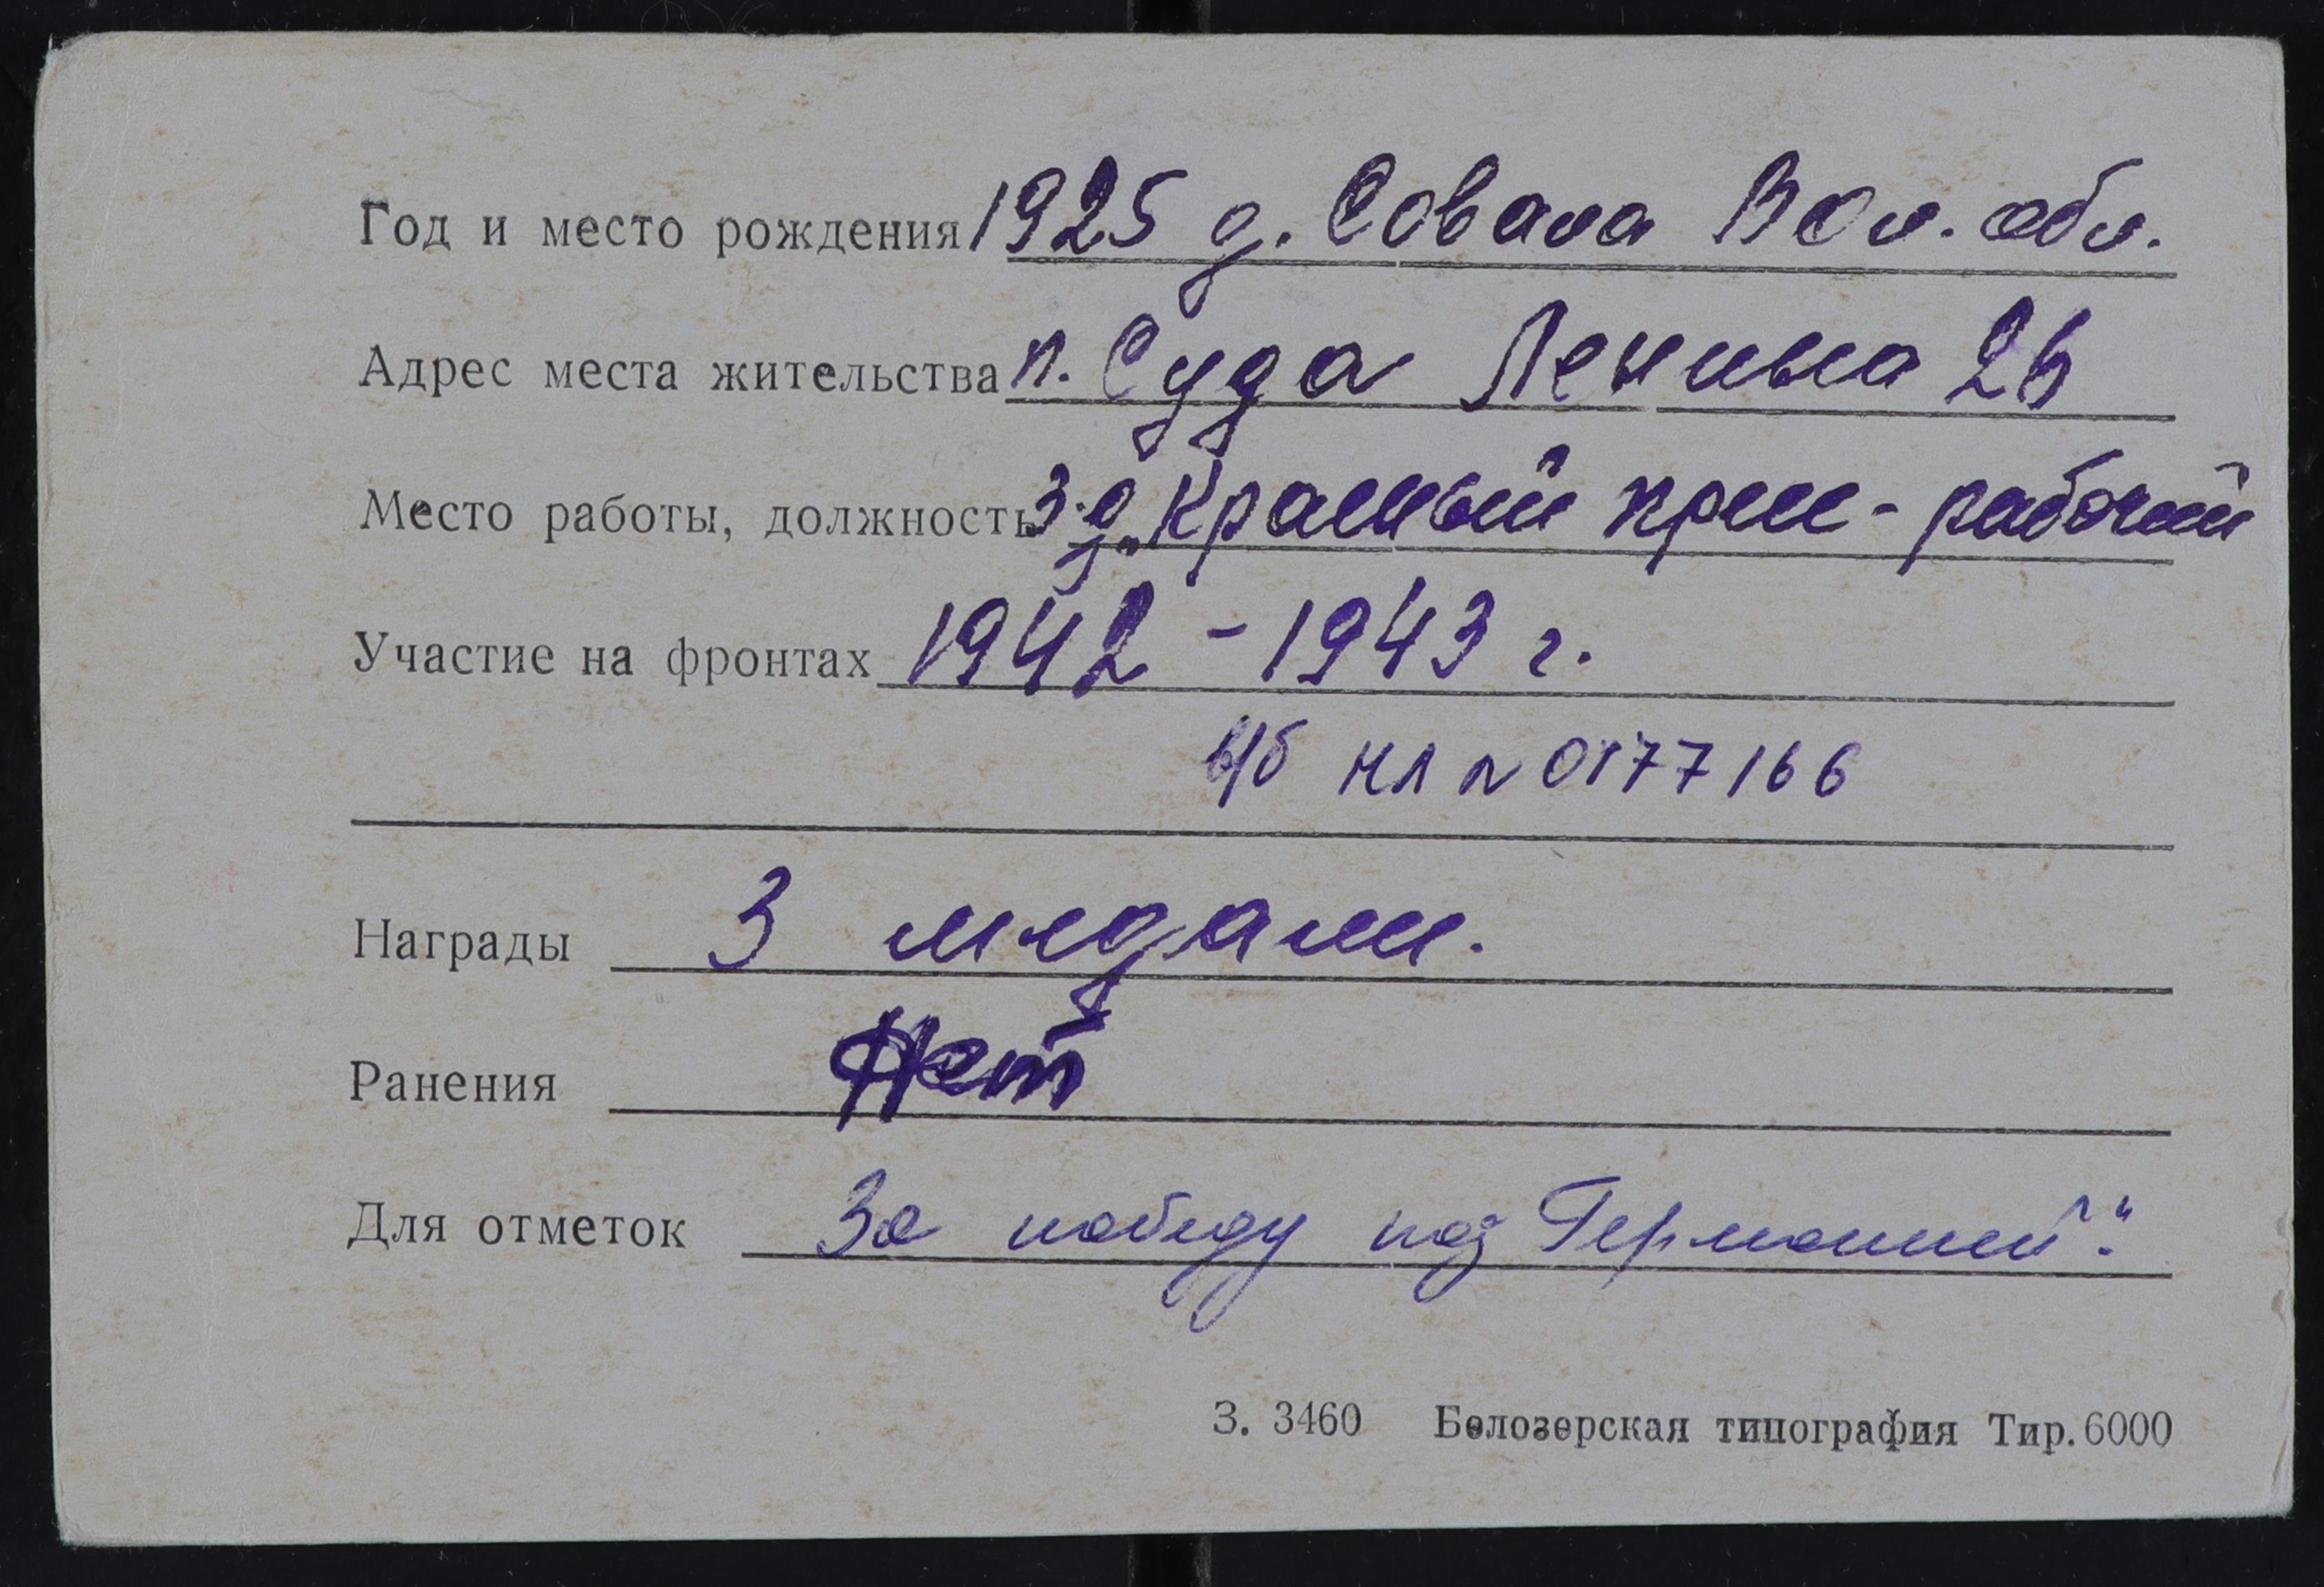 Год и место рождения 1925 д. Совала Вол. обл.
Адрес места жительства п. Суда Ленина 26
Место работы, должность з-д „Красный прис - рабочий
Участие на фронтах 1942 - 1943 г.
в/б НЛ N 0177166
Награды 3 медали.
Ранения Нет
Для отметок За победу над Германией".
З. 3460 Белозерская типография Тир. 6000